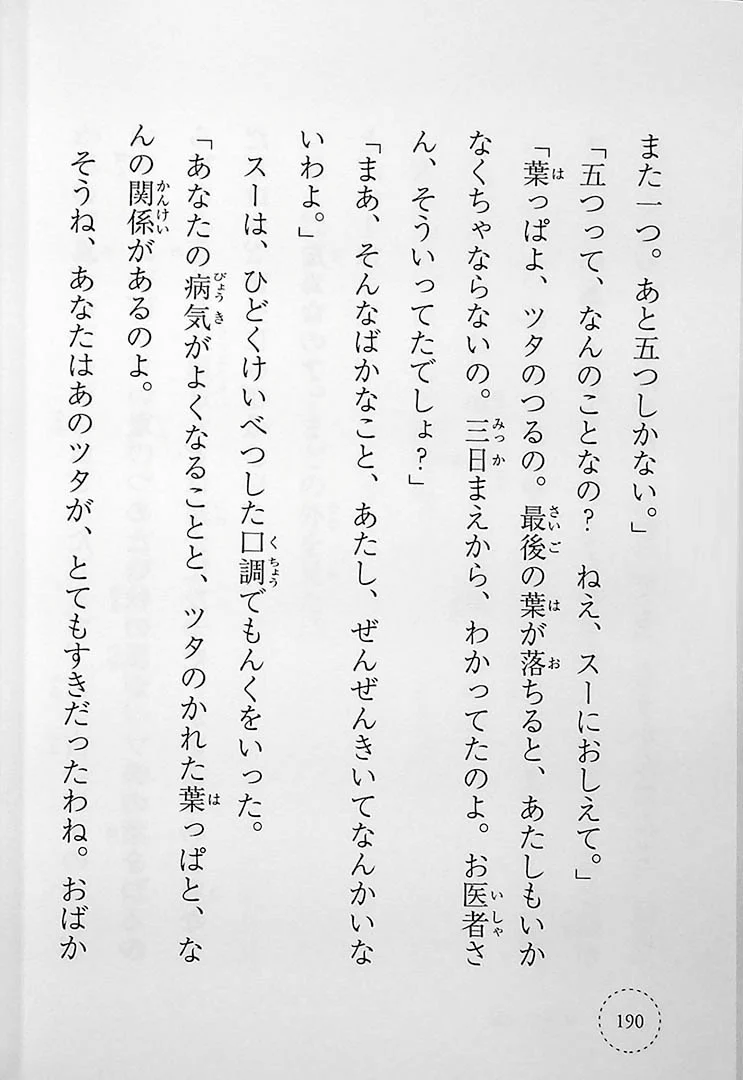 また一つ。あと五つしかない。」
「五つって、なんのことなの？　ねえ、スーにおしえて。」
「葉っぱよ、ツタのつるの。最後の葉が落ちると、あたしもいか
なくちゃならないの。三日まえから、わかってたのよ。お医者さ
ん、そういってたでしょ？」
「まあ、そんなばかなこと、あたし、ぜんぜんきいてなんかいな
いわよ。」
スーは、ひどくけいべつした口調でもんくをいった。
「あなたの病気がよくなることと、ツタのかれた葉っぱと、な
んの関係があるのよ。
そうね、あなたはあのツタが、とてもすきだったわね。おばか
190